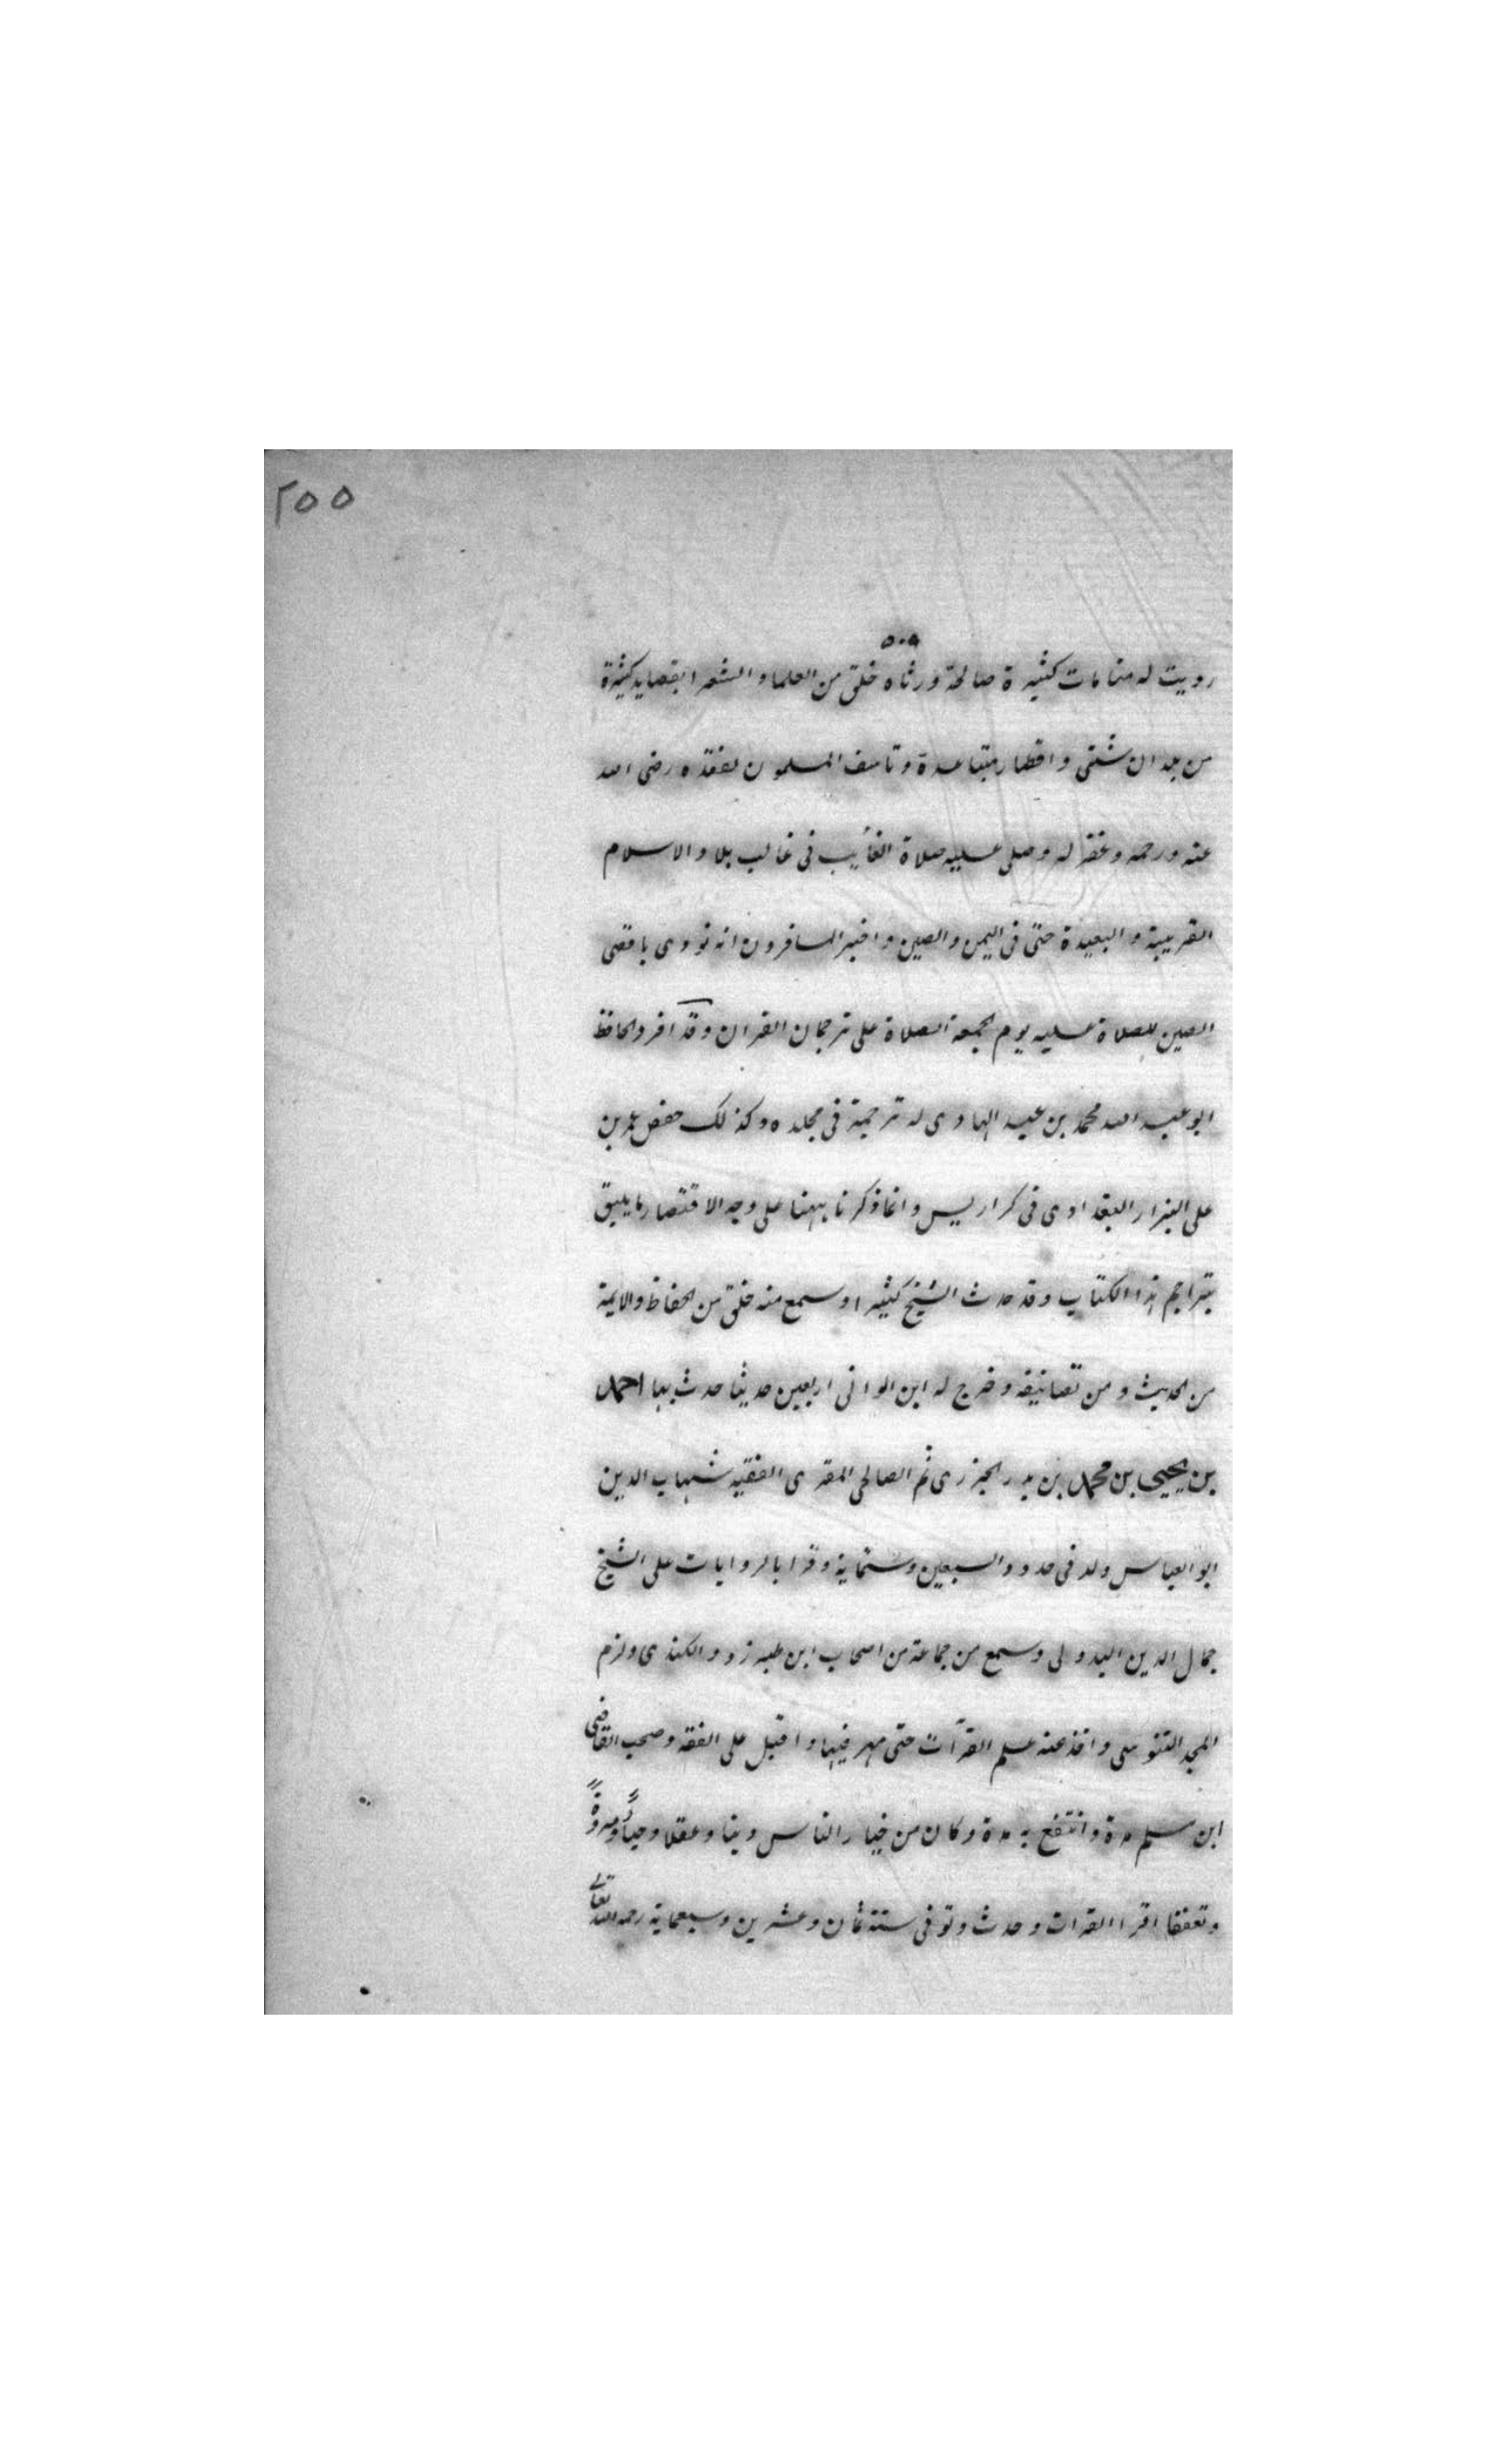 ٢٥٥
٥٠٩
رويت له منامات كثيرة صالحة ورثاه خلق من العلما والشعرا بقصايد كثيرة
من بلدان شتى واقطار متباعدة وتاسف المسلمون لفقده رضى الله
عنه ورحمه وغفر له وصلى عليه صلاة الغائب فى غالب بلاد الاسلام
القريبة والبعيدة حتى فى اليمن والصين واخبر المسافرون انه نودى باقصى
الصين للصلاة عليه يوم الجمعة الصلاة على ترجمان القران وقد افرد الحافظ
ابو عبد الله محمد بن عبد الهادى له ترجمة فى مجلده وكذلك حفص عمر بن
على البزار البغدادى فى كراريس وانما ذكرنا ههنا على وجه الاقتصار ما يليق
بتراجم هذا الكتاب وقد حدث الشيخ كثيرا وسمع منه خلق من الحفاظ والايمة
من الحديث ومن تصانيفه وخرج له ابن الوانى اربعين حديثا حدث بها احمد
بن يحيى بن محمد بن بدر الجزرى ثم الصالحى المقرى الفقيه شهاب الدين
ابو العباس ولد فى حدود السبعين وستماية وقرا بالروايات على الشيخ
جمال الدين البدوى وسمع من جماعة من اصحاب ابن طبرزد والكندى ولزم
المجد التونسى واخذ عنه علم القرآت حتى مهر فيها واقبل على الفقه وصحب القاضى
ابن مسلم مدة وانتفع به مدة وكان من خيار الناس دينا وعقلا وحياءً ومروةً
وتعففا اقرا القرات وحدث وتوفى سنة ثمان وعشرين وسبعماية رحمه الله تعالى